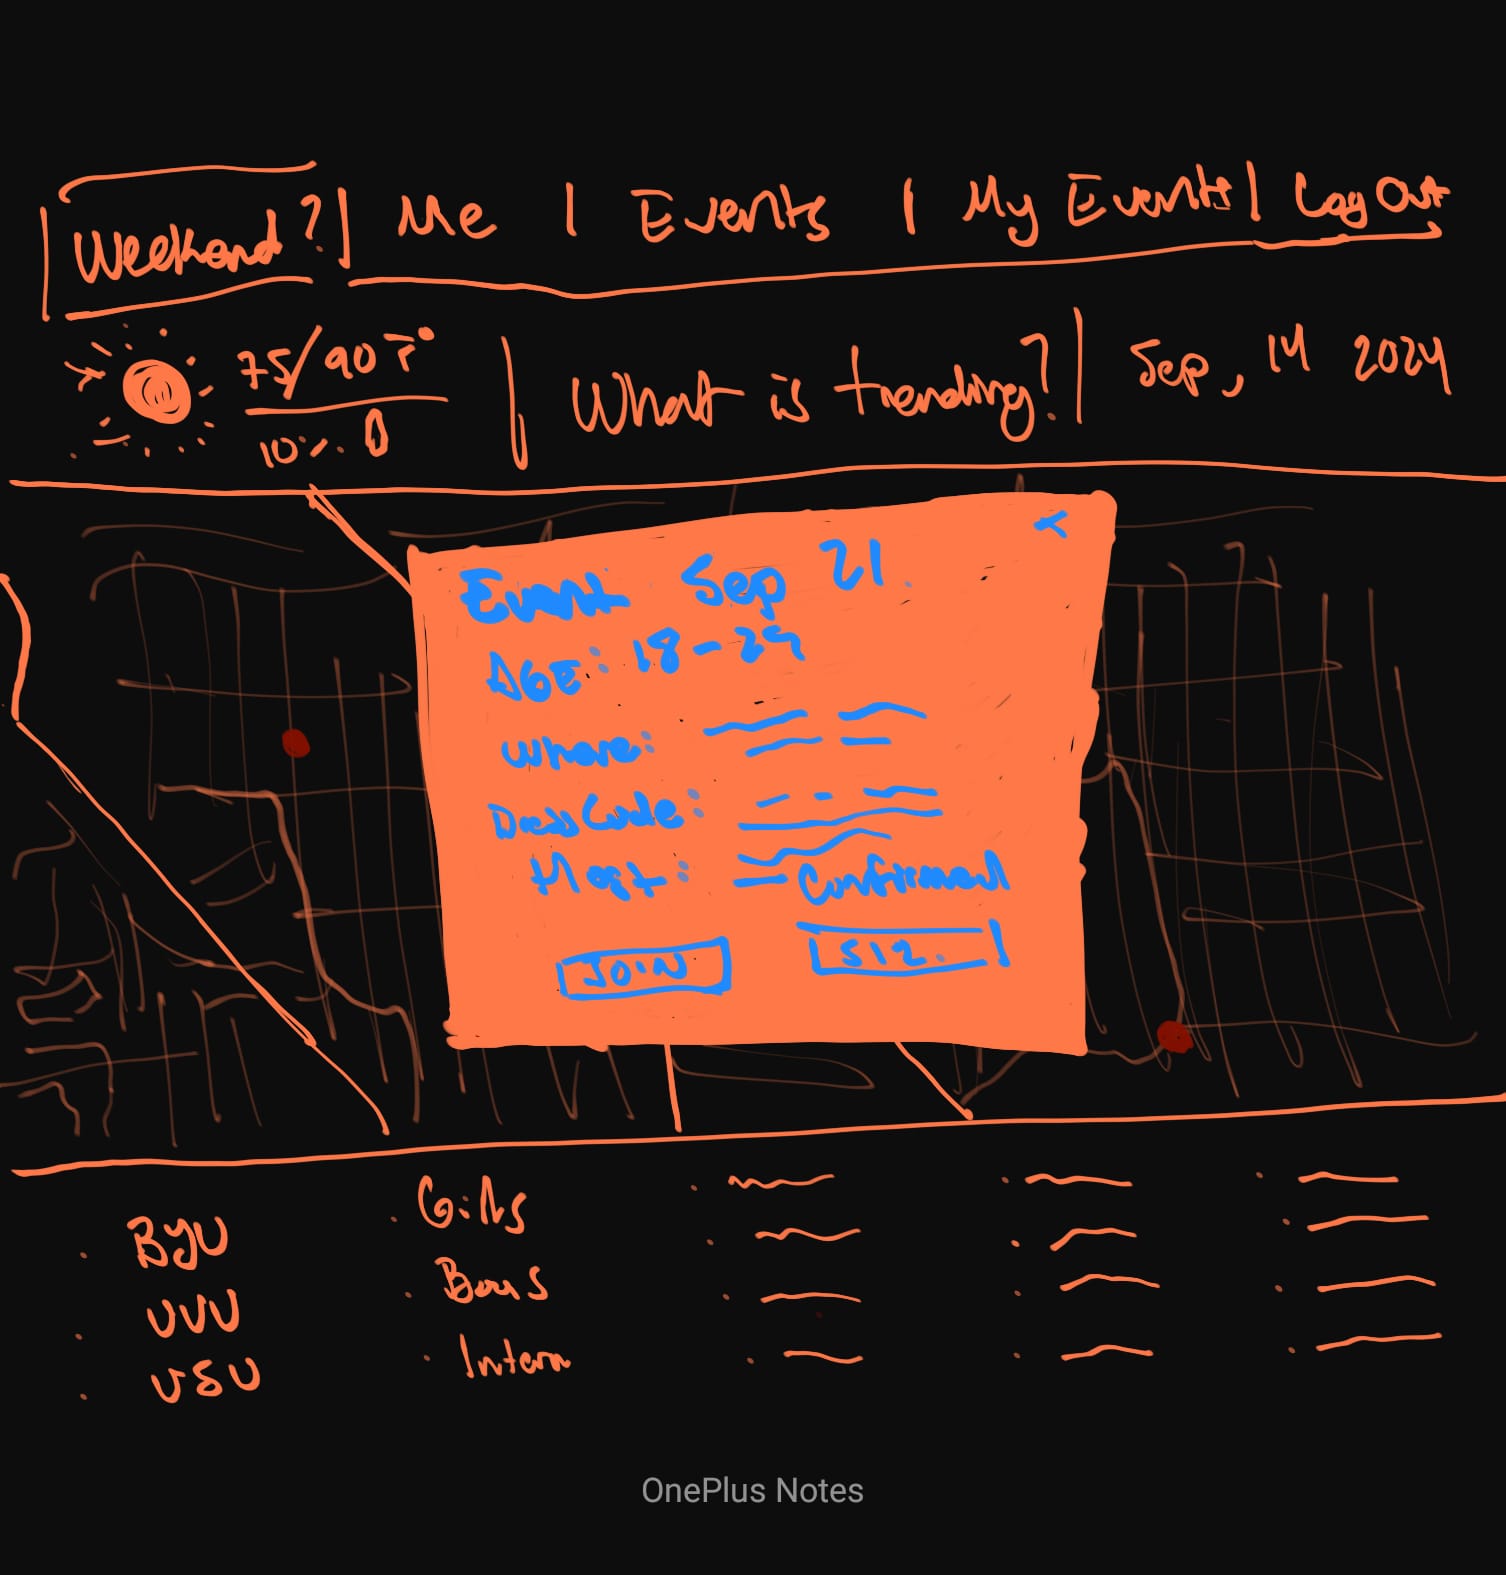 Weekend? | Me | Events | My Events | Log Out
75/90 F° | What is trending? | Sep, 14 2024
10%
Event Sep 21
AGE: 18-29
Where:
Dress Code:
Host:
Confirmed
JOIN 512.
BYU
UVU
USU
Girls
Boys
Intern
OnePlus Notes